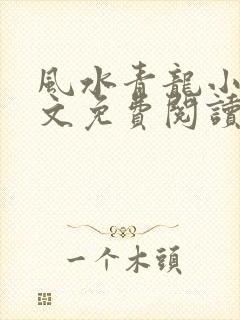 風水青龍小
文免費閱讀
一个木頭